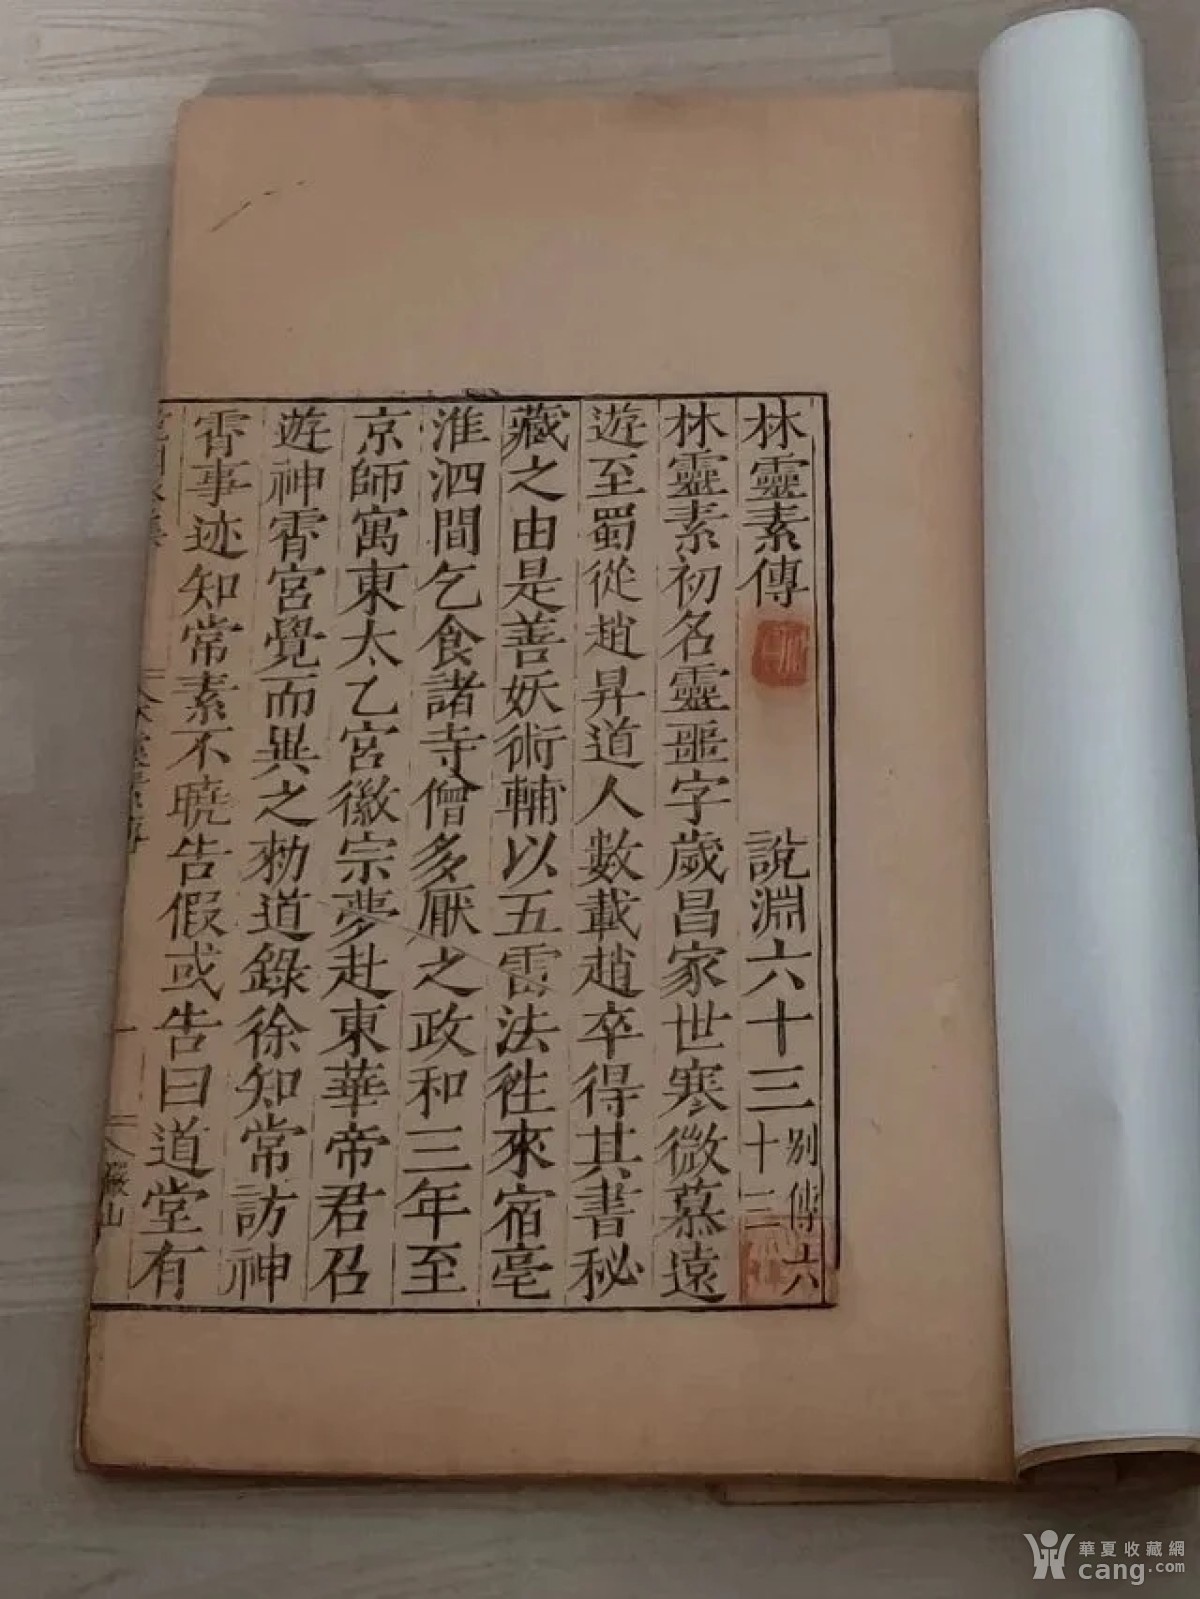 林靈素傳 說淵六十三 別傳六十三
林靈素初名靈噩字歲昌家世寒微慕遠
遊至蜀從趙昇道人數載趙卒得其書秘
藏之由是善妖術輔以五雷法徃來宿亳
淮泗間乞食諸寺僧多厭之政和三年至
京師寓東太乙宮徽宗夢赴東華帝君召
遊神霄宮覺而異之勑道錄徐知常訪神
霄事迹知常素不曉告假或告曰道堂有
華夏收藏網
cang.com